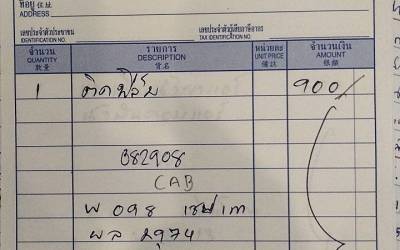 ที่อยู่
ADDRESS
เลขประจำตัวประชาชน
IDENTIFICATION NO.
เลขประจำตัวผู้เสียภาษีอากร
TAX IDENTIFICATION NO.
จำนวน รายการ หน่วยละ จำนวนเงิน
QUANTITY DESCRIPTION UNIT PRICE AMOUNT
數量 貨名 備註 銀額
1 ติดฟิล์ม 900/
082908
CAB
พ 098
ผล 2974